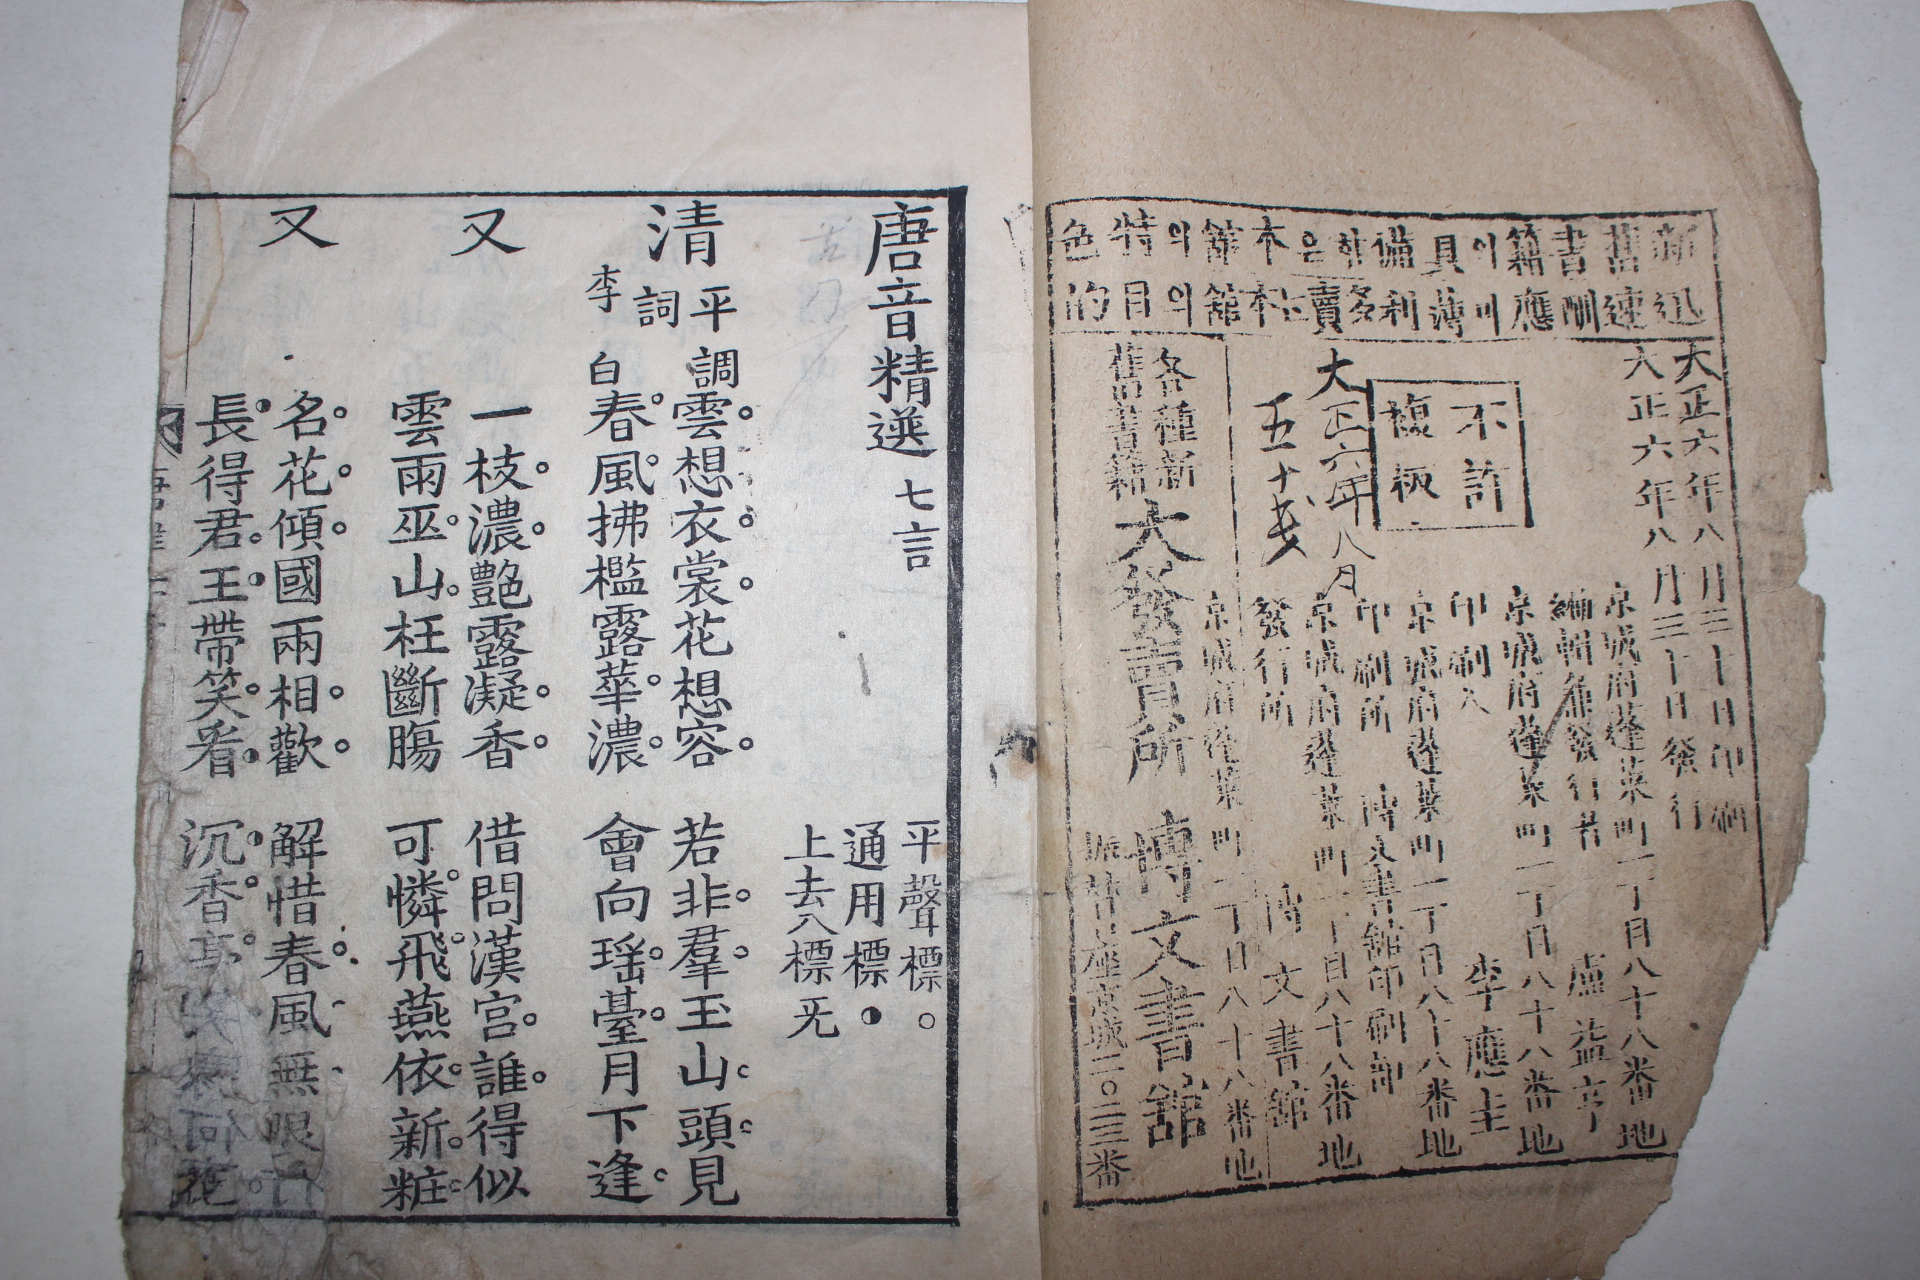 新舊書籍이具備하은本館의特色
迅速酬應이며薄利多賣는本館의目的
大正六年八月三十日印刷
大正六年八月三十日發行
不許
複板
大正六年八月
五十戔
京城府蓬萊町一丁目八十八番地
編輯兼發行者 盧益亨
京城府蓬萊町一丁目八十八番地
印刷人 李應圭
京城府蓬萊町一丁目八十八番地
印刷所 博文書館印刷部
京城府蓬萊町一丁目八十八番地
發行所 博文書館
京城府蓬萊町一丁目八十八番地
各種新
舊書籍
大發賣所 博文書館
振替口座京城二〇二三番
唐音精選 七言
平聲標○
通用標◑
上去入標旡
清平調
詞
李白
雲想衣裳花想容 若非羣玉山頭見
春風拂檻露華濃 會向瑶臺月下逢
又
一枝濃艶露凝香 借問漢宮誰得似
雲雨巫山枉斷膓 可憐飛燕依新粧
又
名花傾國兩相歡 解惜春風無限
長得君王帶笑看 沉香亭